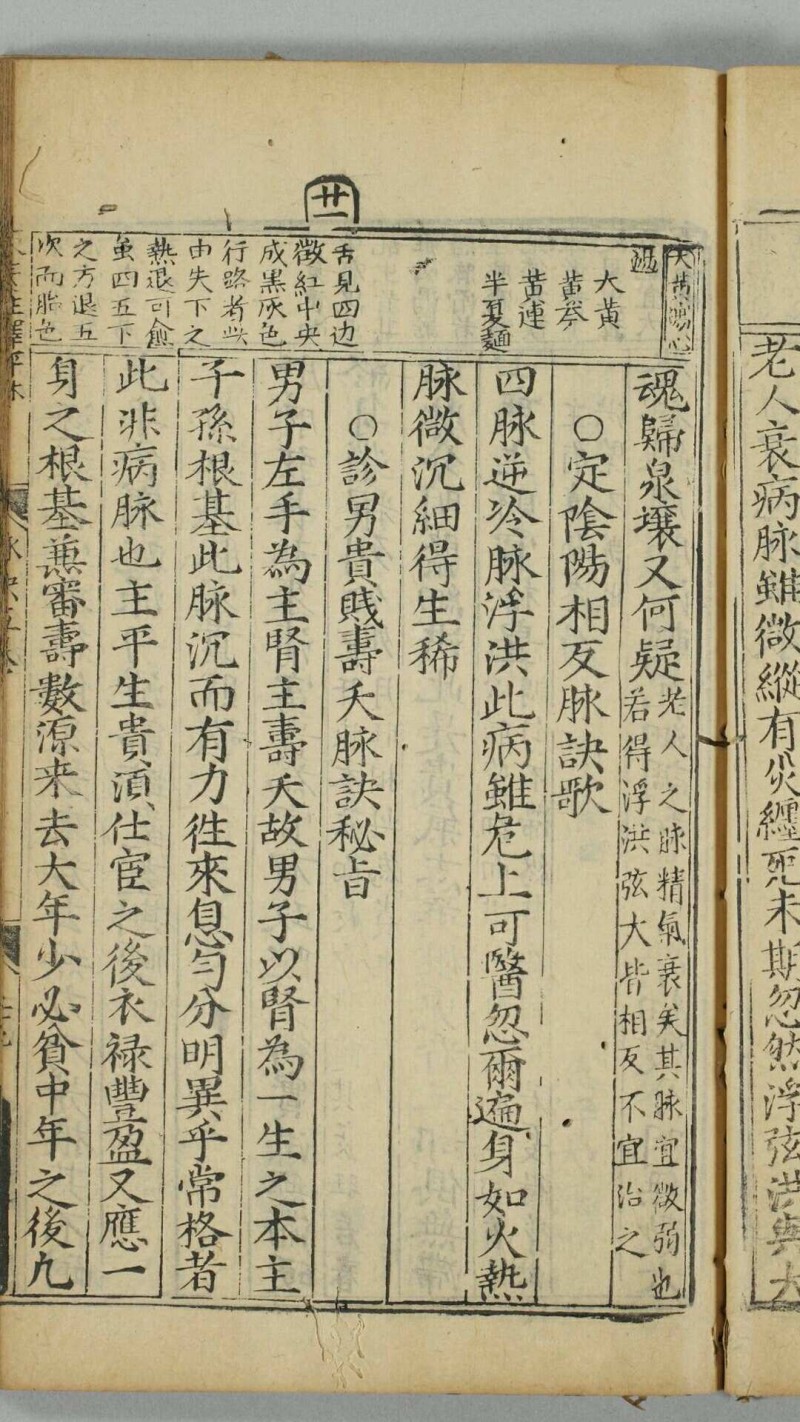 老人衰病脉雖微縱有災纏死未期忽然浮弦洪與大
廿一
大黃瀉心
湯
大黃
黃芩
黃連
半夏麯
舌見四边
微紅中央
成黑灰色
行路者此
由失下之
熱退可愈
虽四五下
之方退五
次而脂色
魂歸泉壤又何疑
老人之脉精氣衰矣其脉宜微弱也
若得浮洪弦大皆相反不宜治之
○定陰陽相反脉訣歌
四脉逆冷脉浮洪此病雖危上可醫忽爾遍身如火熱
脉微沉細得生稀
○診男貴賤壽夭脉訣秘旨
男子左手為主腎主壽夭故男子以腎為一生之本主
子孫根基此脉沉而有力徃來息勻分明異乎常格者
此非病脉也主平生貴湏仕宦之後衣禄豐盈又應一
身之根基兼審壽數源来去大年少必貧中年之後九